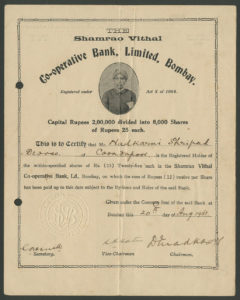 THE
Shamrao Vithal
Co-operative Bank, Limited, Bombay.
Registered under Act X of 1904.
Capital Rupees 2,00,000 divided into 8,000 Shares
of Rupees 25 each.
This is to Certify that Nadkarni Shripad
is the Registered Holder
of the within-mentioned shares of Rs. (25) Twenty-five each in the Shamrao Vithal
Co-operative Bank, Ld. Bombay, on which the sum of Rupees (12) twelve per Share
has been paid up to this date subject to the Byelaws and Rules of the said Bank.
Given under the Common Seal of the said Bank, at
Bombay this 20th day of Aug
Secretary.
Vice Chairman
Chairman.